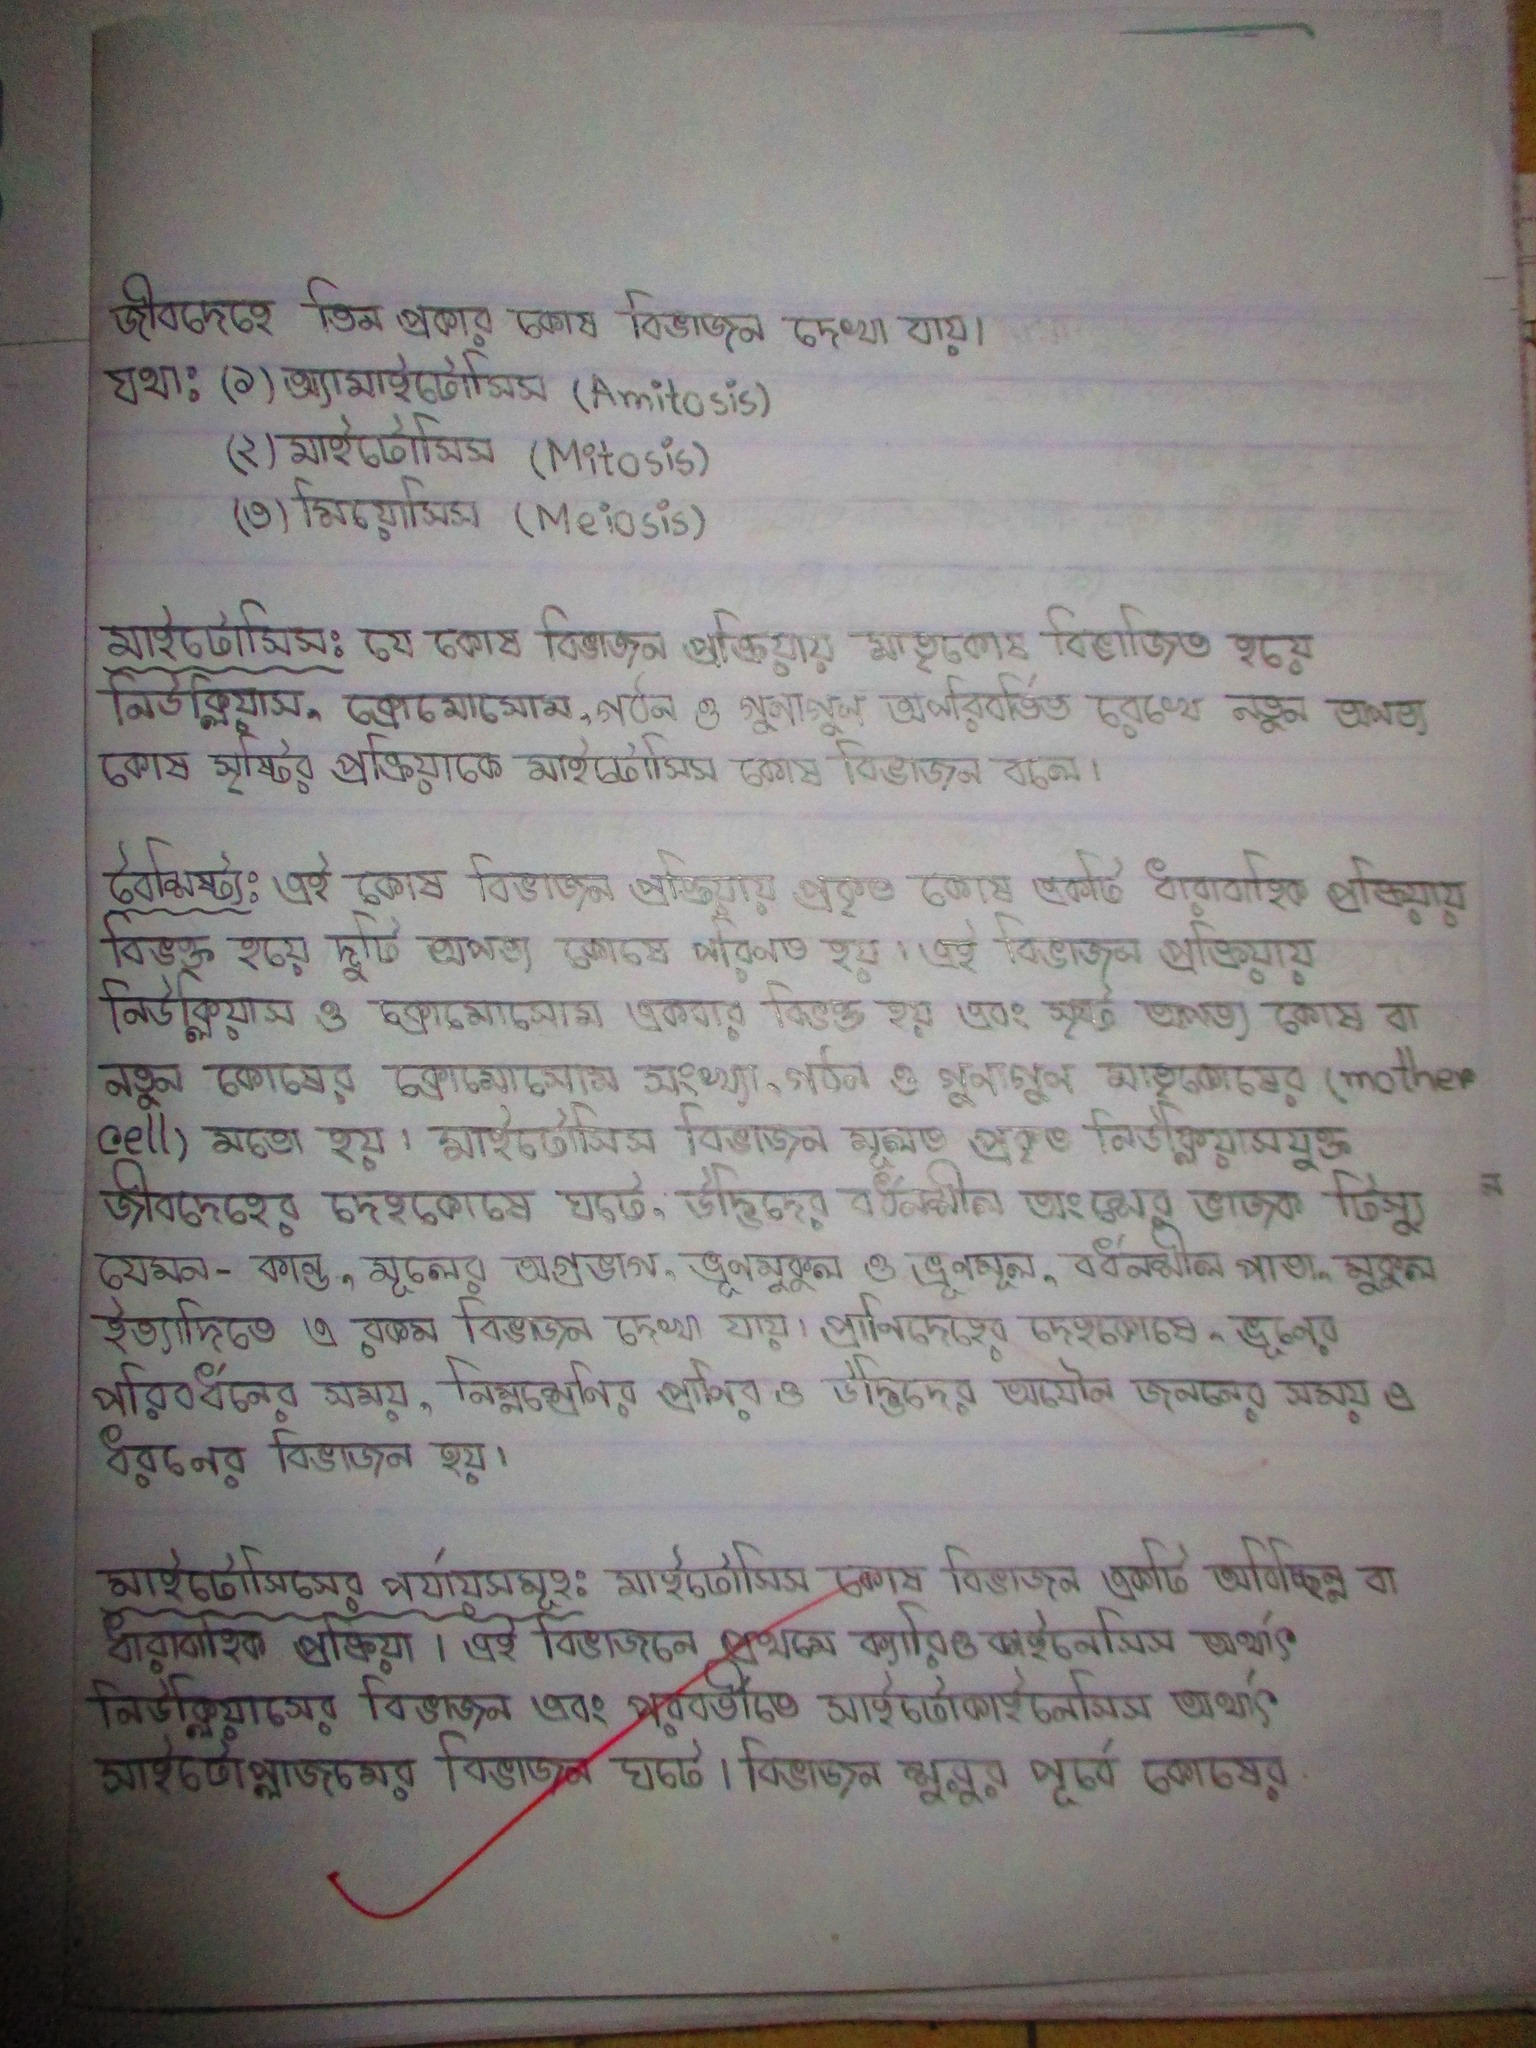 জীবদেহে তিন প্রকার কোষ বিভাজন দেখা যায়।
যথা: (১) অ্যামাইটোসিস (Amitosis)
(২) মাইটোসিস (Mitosis)
(৩) মিয়োসিস (Meiosis)
মাইটোসিস: যে কোষ বিভাজন প্রক্রিয়ায় মাতৃকোষ বিভাজিত হয়ে
নিউক্লিয়াস, ক্রোমোসোম, গঠন ও গুনাগুন অপরিবর্তিত রেখে নতুন অপত্য
কোষ সৃষ্টির প্রক্রিয়াকে মাইটোসিস কোষ বিভাজন বলে।
বৈশিষ্ট্য: এই কোষ বিভাজন প্রক্রিয়ায় প্রকৃত কোষ একটি ধারাবাহিক প্রক্রিয়ায়
বিভক্ত হয়ে দুটি অপত্য কোষে পরিনত হয়। এই বিভাজন প্রক্রিয়ায়
নিউক্লিয়াস ও ক্রোমোসোম একবার বিভক্ত হয় এবং সৃষ্ট অপত্য কোষ বা
নতুন কোষের ক্রোমোসোম সংখ্যা, গঠন ও গুনাগুন মাতৃকোষের (mother
cell) মতো হয়। মাইটোসিস বিভাজন মূলত প্রকৃত নিউক্লিয়াসযুক্ত
জীবদেহের দেহকোষে ঘটে, উদ্ভিদের বর্ধনশীল অংশের ভাজক টিস্যু
যেমন- কান্ড, মূলের অগ্রভাগ, ভ্রূণমুকুল ও ভ্রূণমূল, বর্ধনশীল পাতা, মুকুল
ইত্যাদিতে এ রকম বিভাজন দেখা যায়। প্রানিদেহের দেহকোষে, ভ্রূনের
পরিবর্ধনের সময়, নিম্নশ্রেনির প্রানির ও উদ্ভিদের অযৌন জননের সময় এ
ধরনের বিভাজন হয়।
মাইটোসিসের পর্যায়সমূহ: মাইটোসিস কোষ বিভাজন একটি অবিচ্ছিন্ন বা
ধারাবাহিক প্রক্রিয়া। এই বিভাজনে প্রথমে ক্যারিওকাইনেসিস অর্থাৎ
নিউক্লিয়াসের বিভাজন এবং পরবর্তীতে সাইটোকাইনেসিস অর্থাৎ
সাইটোপ্লাজমের বিভাজন ঘটে। বিভাজন শুরুর পূর্বে কোষের